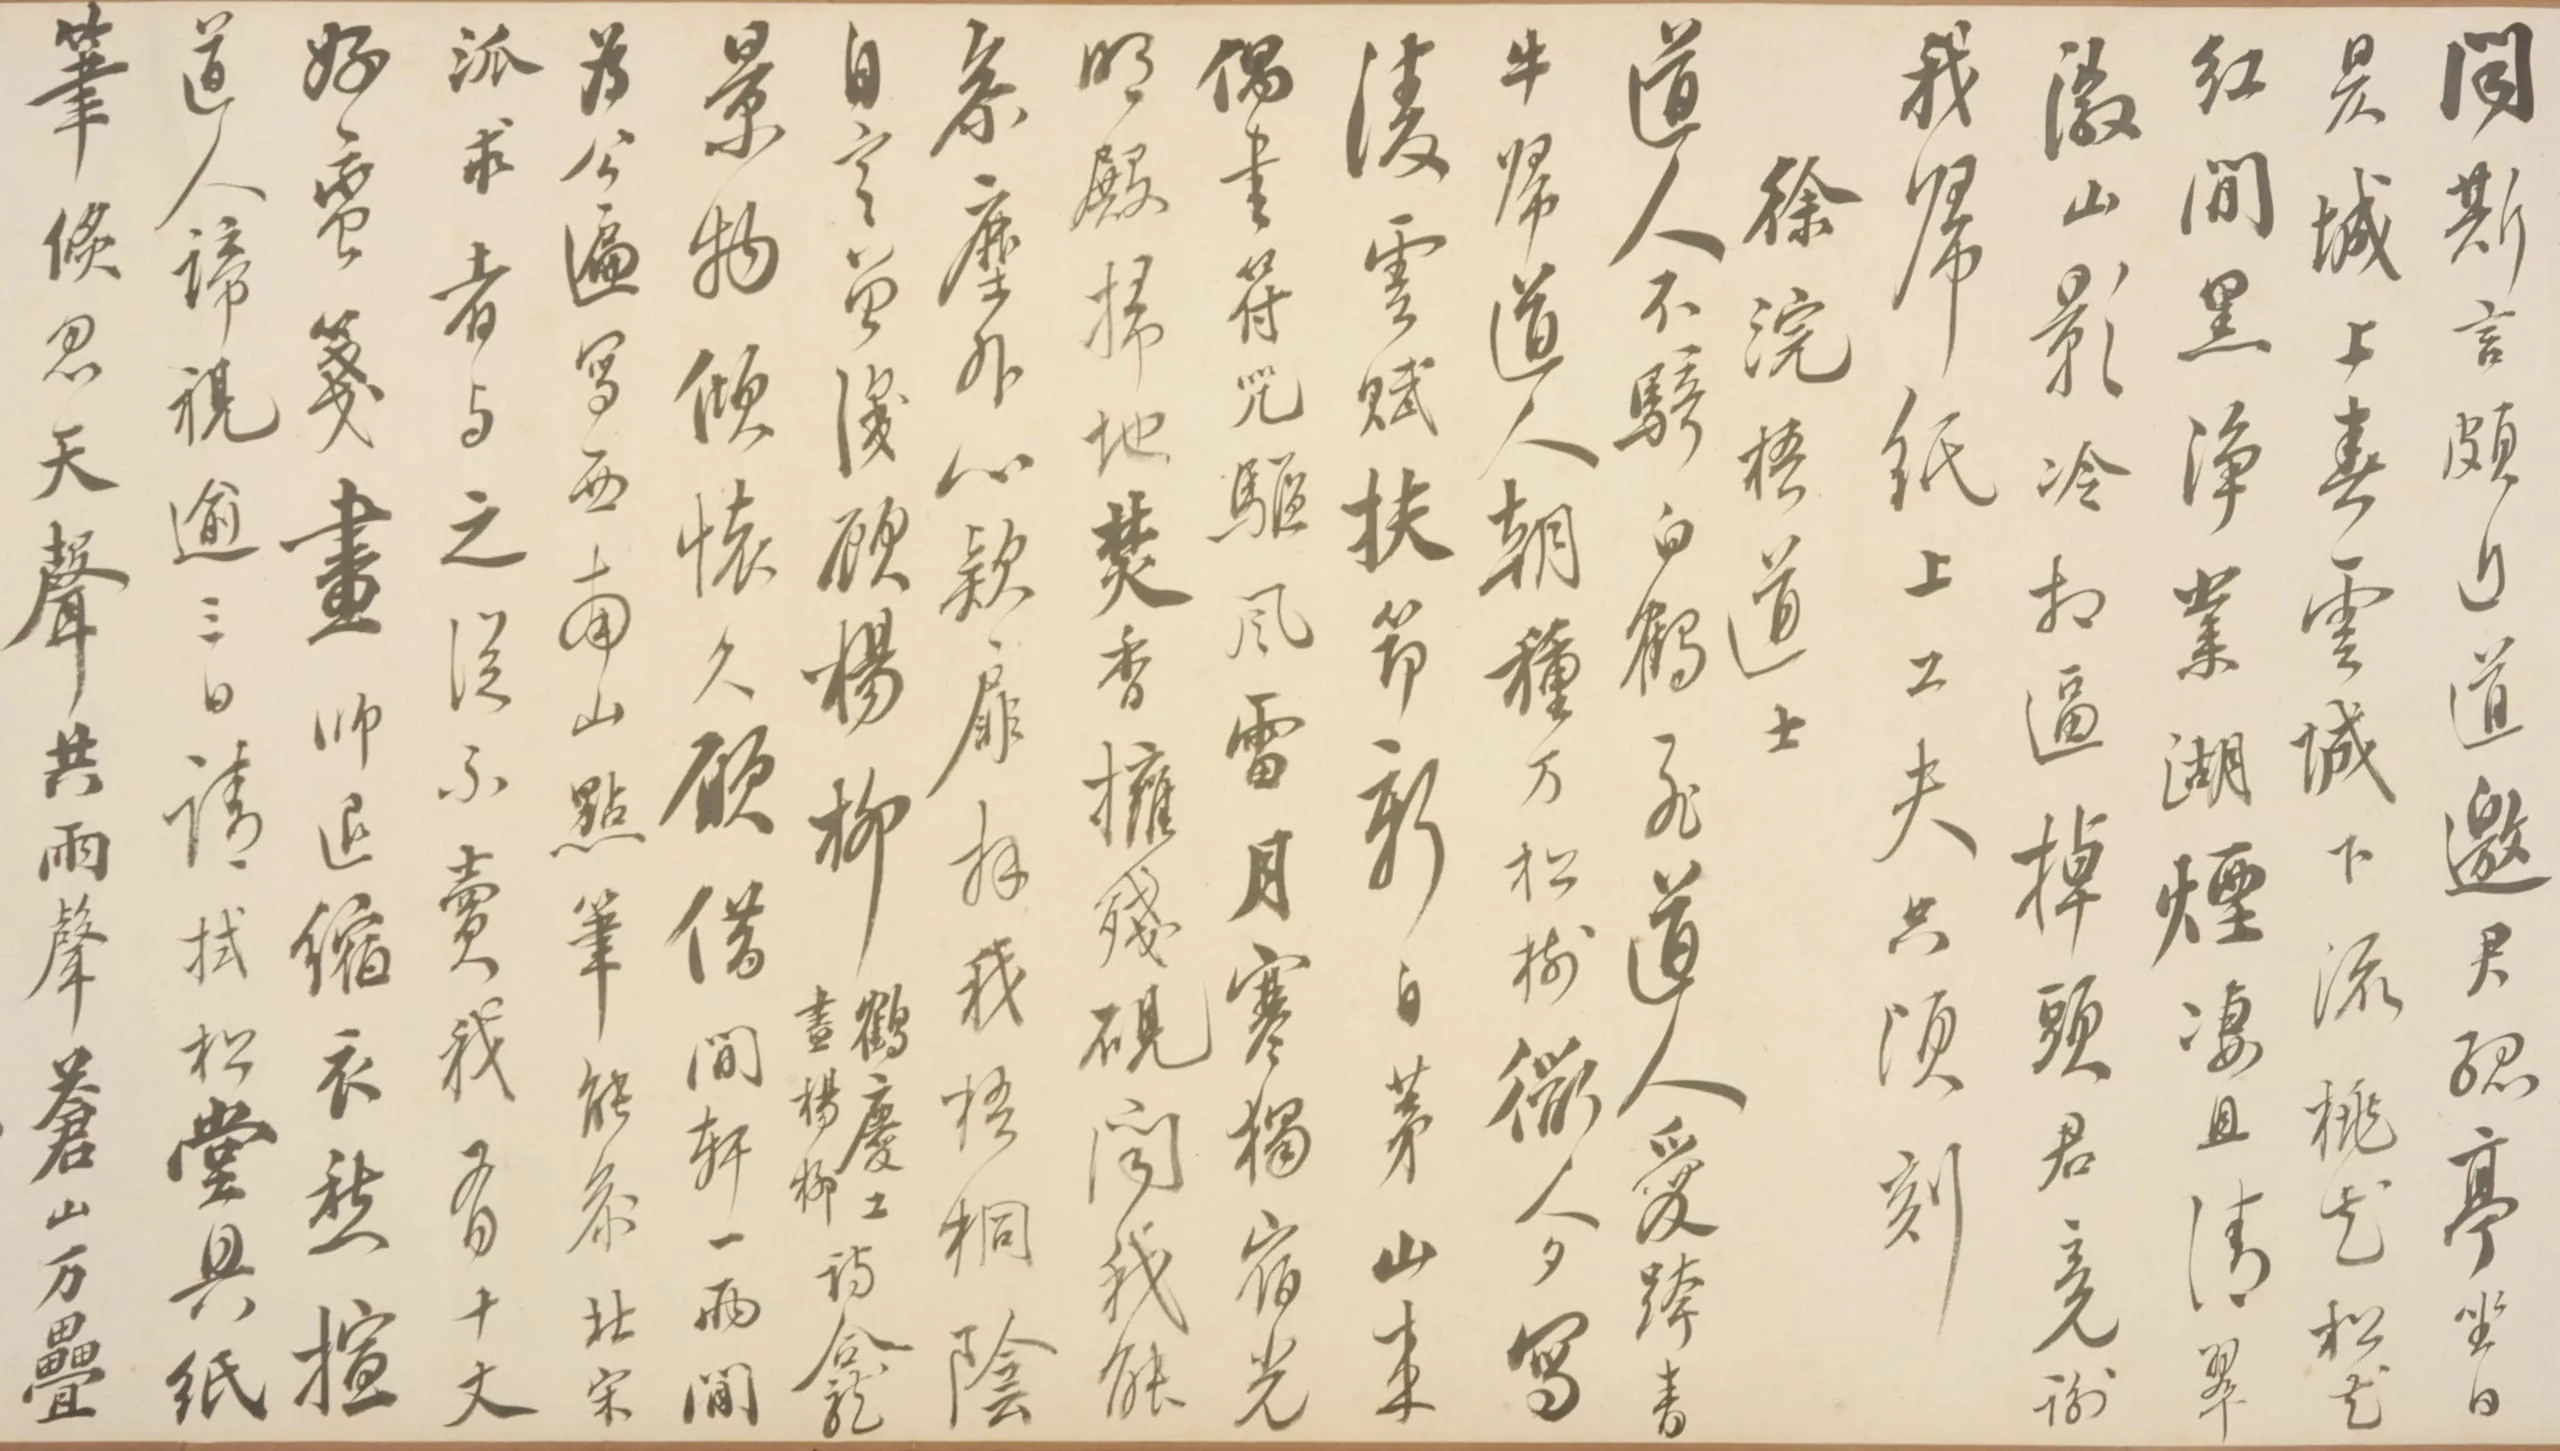 聞斯言頗近道邀君孤亭坐日
昃城上春雲城下流桃花松花
紅間黑淨業湖煙淒且清翠
潑山影冷相逼掉頭君竟謝
我歸紙上工夫只頃刻
徐浣梧道士
道人不騎白鶴飛道人愛跨青
牛歸道人朝種万松樹衙人夕寫
淩雲賦扶節新自茅山來
偶書符咒驅風雷月寒獨宿光
明殿掃地焚香擁殘硯聞我能
參塵外心款扉拜我梧桐陰
自言曾識顧楊柳鶴慶士詩龕
畫楊柳
景物傾懷久顧借間軒一兩間
為公遍寫西南山點筆能參北宋
派求者与之從不賣我有十丈
好蠻箋畫師退縮衣愁揎
道人諦視逾三日請拭松堂具紙
筆倏忽天聲共雨聲蒼山万疊